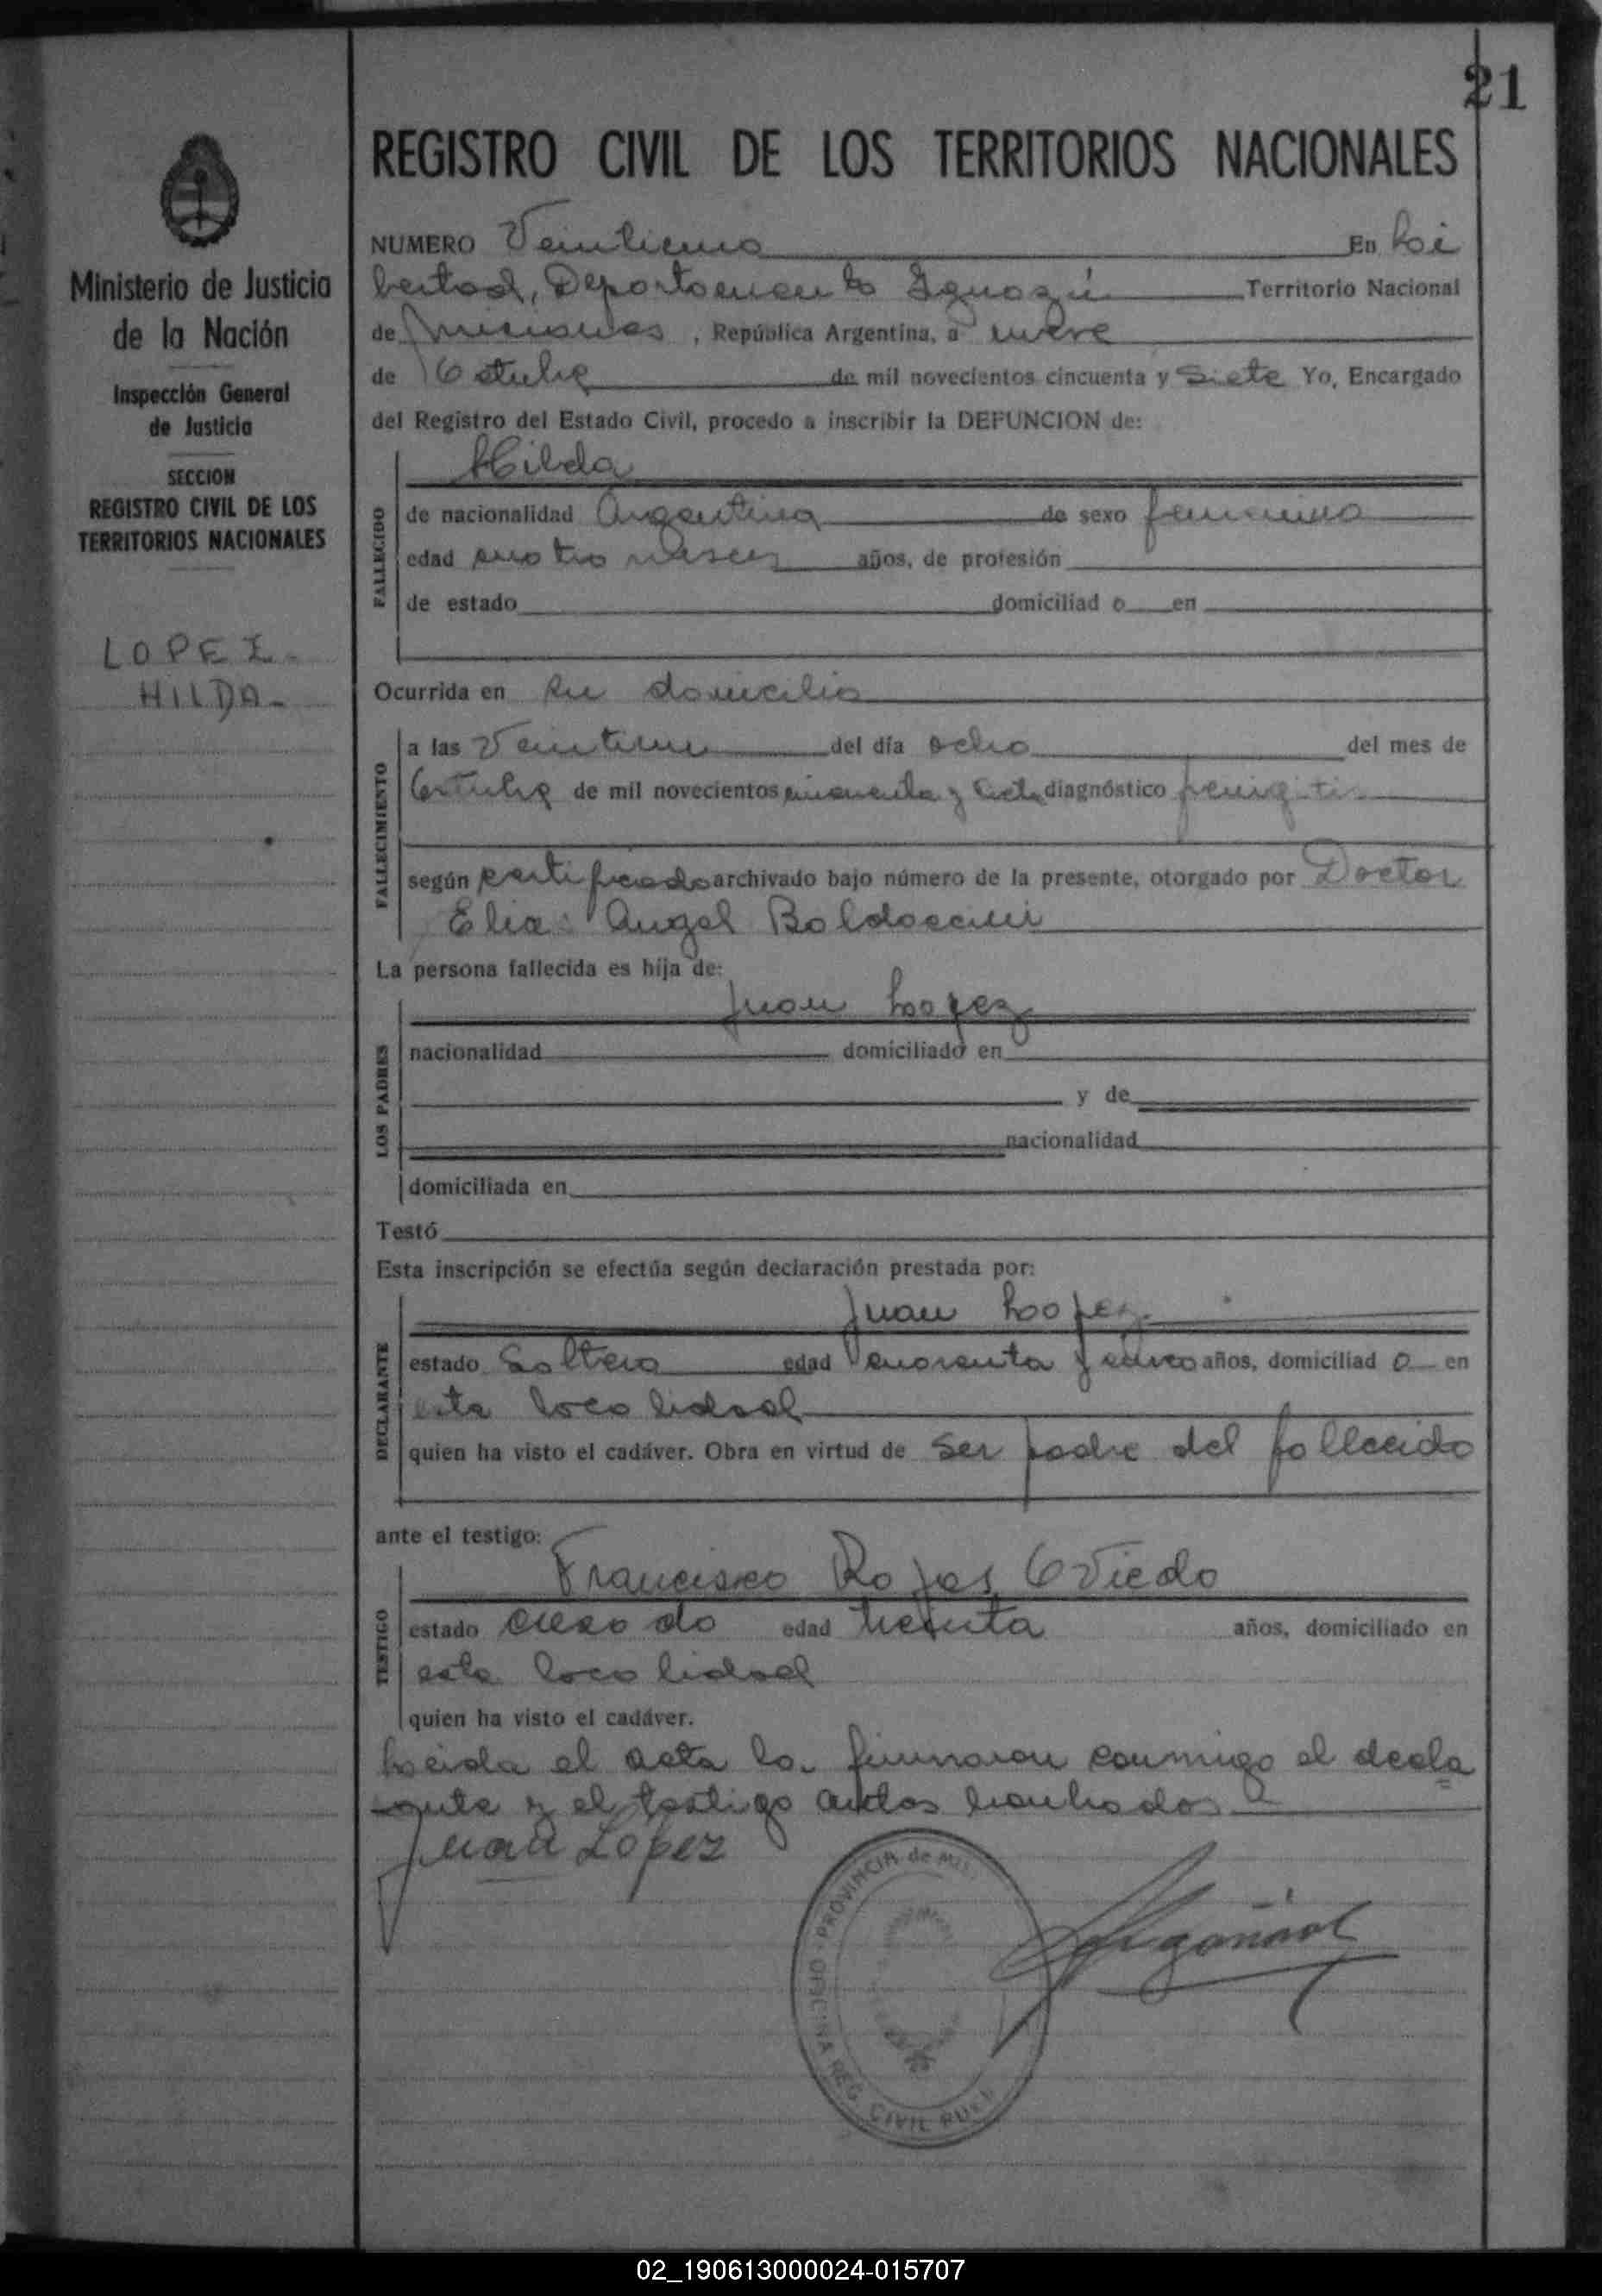 21
REGISTRO CIVIL DE LOS TERRITORIOS NACIONALES
Ministerio de Justicia
de la Nación
Inspección General
de Justicia
SECCION
REGISTRO CIVIL DE LOS
TERRITORIOS NACIONALES
LOPEZ-
HILDA-
NUMERO Veintiuno En Li
bertad, Departamento Iguazú Territorio Nacional
de Misiones, República Argentina, a nueve
de Octubre de mil novecientos cincuenta y Siete Yo, Encargado
del Registro del Estado Civil, procedo a inscribir la DEFUNCION de:
FALLECIDO
Hilda
de nacionalidad Argentina de sexo femenino
edad cuatro meses años, de profesión
de estado domiciliad o en
Ocurrida en su domicilio
FALLECIMIENTO
a las Veintiuna del día ocho del mes de
Octubre de mil novecientos cincuenta y siete diagnóstico
según certificado archivado bajo número de la presente, otorgado por Doctor
Elia: Angel
La persona fallecida es hija de:
LOS PADRES
Juan Lopez
nacionalidad domiciliado en
y de
nacionalidad
domiciliada en
Testó
Esta inscripción se efectúa según declaración prestada por:
DECLARANTE
Juan Lopez.
estado Soltero edad cuarenta y cinco años, domiciliad o en
esta localidad
quien ha visto el cadáver. Obra en virtud de ser padre del fallecido
ante el testigo:
TESTIGO
Francisco Rojas Oviedo
estado casado edad treinta años, domiciliado en
esta localidad
quien ha visto el cadáver.
Leida el acta la firmaron conmigo el decla
rante y el testigo
Juan Lopez
OFICINA REG. CIVIL PROVINCIA de MIS.
02_190613000024-015707